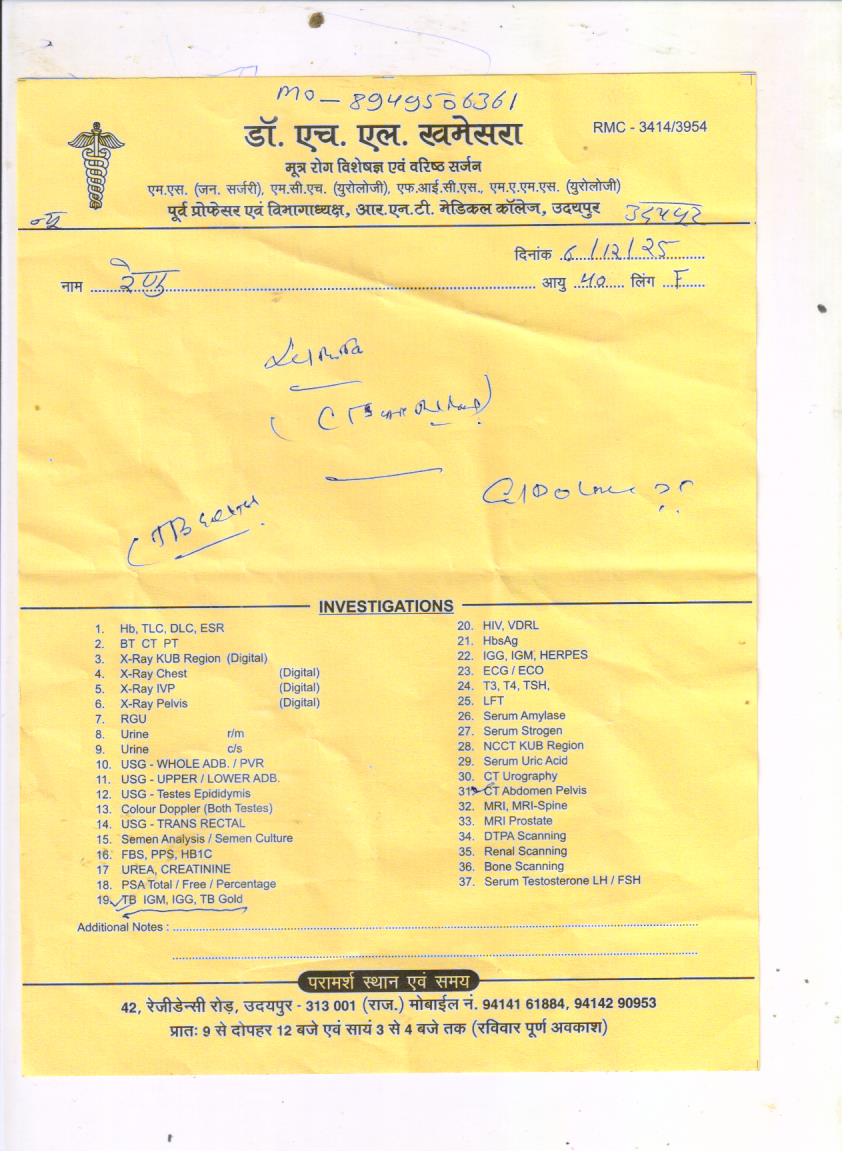 mo - 8949506361
डॉ. एच. एल. खमेसरा
RMC - 3414/3954
मूत्र रोग विशेषज्ञ एवं वरिष्ठ सर्जन
एम.एस. (जन. सर्जरी), एम.सी.एच. (युरोलोजी), एफ.आई.सी.एस., एम.ए.एम.एस. (युरोलोजी)
पूर्व प्रोफेसर एवं विभागाध्यक्ष, आर.एन.टी. मेडिकल कॉलेज, उदयपुर
उदयपुर
दिनांक 6/12/25
नाम रेणु आयु 40 लिंग F
INVESTIGATIONS
1. Hb, TLC, DLC, ESR
2. BT CT PT
3. X-Ray KUB Region (Digital)
4. X-Ray Chest (Digital)
5. X-Ray IVP (Digital)
6. X-Ray Pelvis (Digital)
7. RGU
8. Urine r/m
9. Urine c/s
10. USG - WHOLE ADB. / PVR
11. USG - UPPER / LOWER ADB.
12. USG - Testes Epididymis
13. Colour Doppler (Both Testes)
14. USG - TRANS RECTAL
15. Semen Analysis / Semen Culture
16. FBS, PPS, HB1C
17 UREA, CREATININE
18. PSA Total / Free / Percentage
19. TB IGM, IGG, TB Gold
20. HIV, VDRL
21. HbsAg
22. IGG, IGM, HERPES
23. ECG / ECO
24. T3, T4, TSH,
25. LFT
26. Serum Amylase
27. Serum Strogen
28. NCCT KUB Region
29. Serum Uric Acid
30. CT Urography
31. CT Abdomen Pelvis
32. MRI, MRI-Spine
33. MRI Prostate
34. DTPA Scanning
35. Renal Scanning
36. Bone Scanning
37. Serum Testosterone LH / FSH
Additional Notes :
परामर्श स्थान एवं समय
42, रेजीडेन्सी रोड़, उदयपुर - 313 001 (राज.) मोबाईल नं. 94141 61884, 94142 90953
प्रातः 9 से दोपहर 12 बजे एवं सायं 3 से 4 बजे तक (रविवार पूर्ण अवकाश)